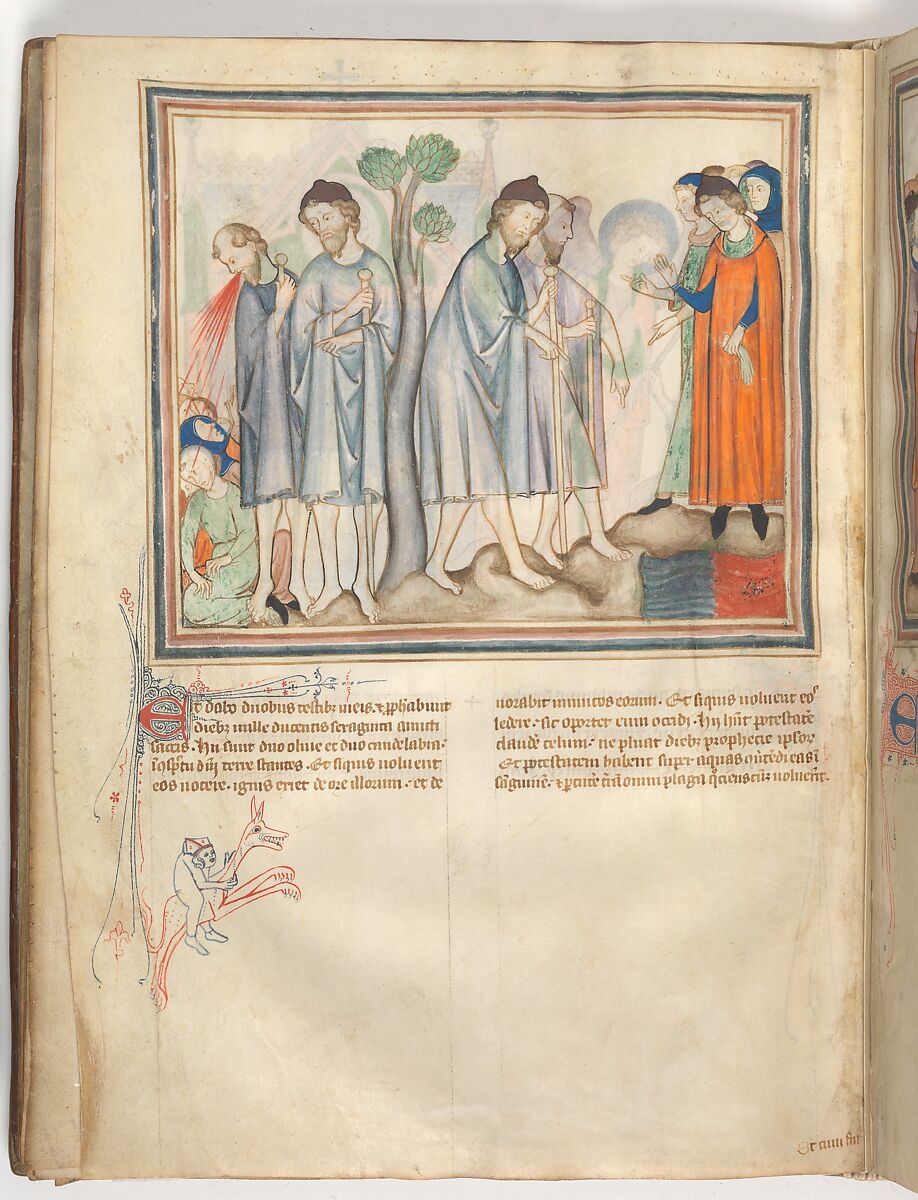 Et dabo duobus testibz meis. ⁊ pphabunt
diebz mille ducentis sexaginta amicti
saccis. Hii sunt duo oliue et duo candelabra.
i ꝯspctu dni terre stantes. Et siquis voluerit
eos nocere. ignis exiet de ore illorum. et de
uorabit inimicos eorum. Et siquis voluerit eos
ledere. sic oportet eum occidi. Hii hnt potestate
claudē celum. ne pluat diebz prophecie ipsor
Et potestatem habent super aquas eas ī
sanguinē. ⁊ omni plaga voluerit.
Et cum